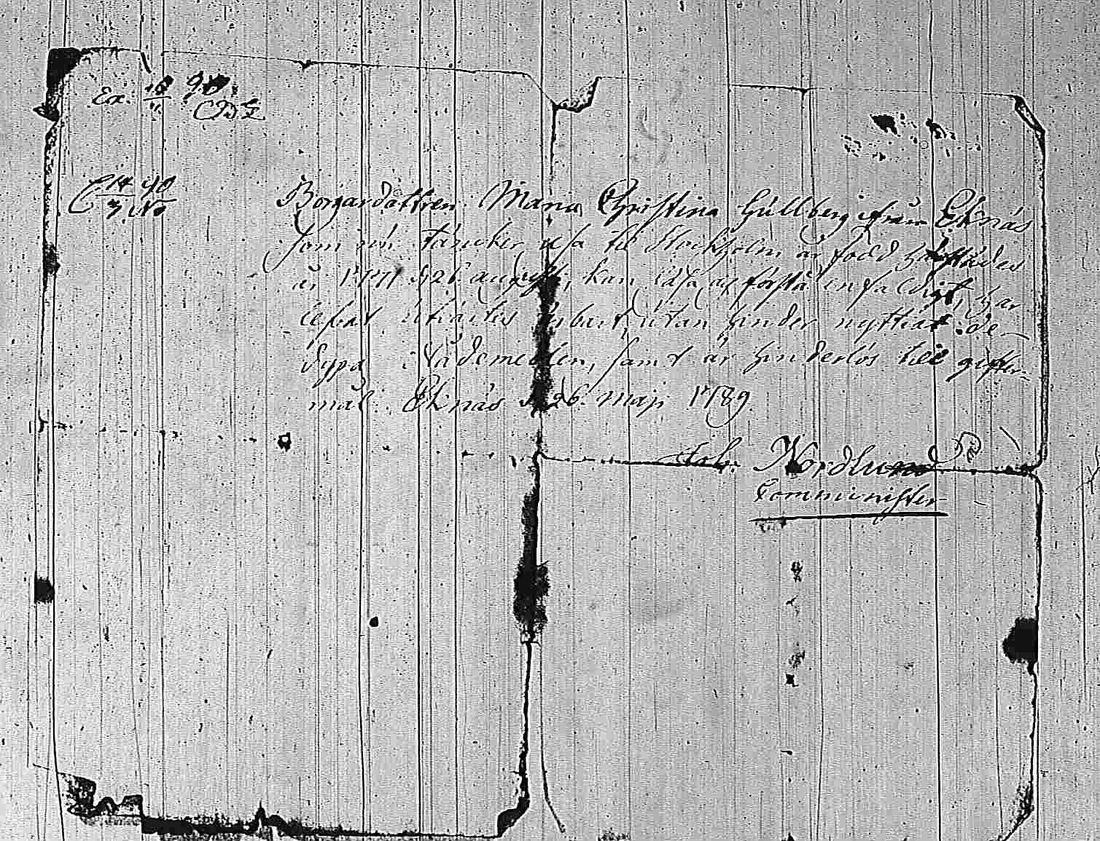 Ex. 18/11 90
14/7 90
Borgardottren Maria Christina Gúllberg ifrån Eknäs
som nú täncker resa til Stockholm är född härstädes
år 1771 d 26 augusti, kan läsa och förstå enfaldigt, har
lefvat utan hinder nyttiat de
dyra Nådemedlen, samt är hinderlös till gifter-
mål. Eknäs d 26 maji 1789.
Nordlund
Comminister